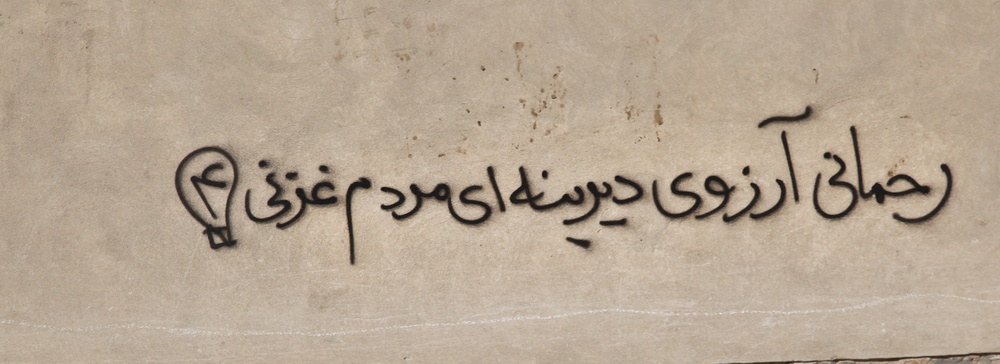 رحمانی آرزوی دیرینه ای مردم غزنی ۴